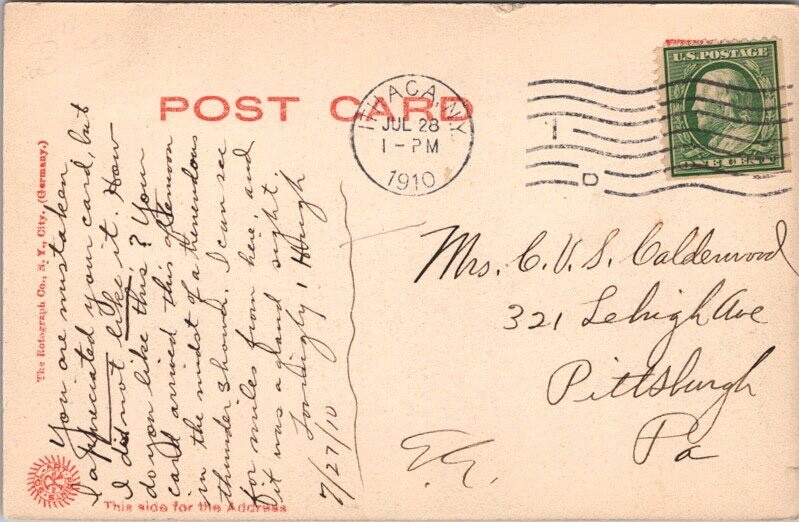 POST CARD
ITHACA, N.Y.
JUL 28
1-PM
1910
U.S. POSTAGE
ONE CENT
The Rotograph Co., N. Y., City, (Germany.)
You are mistaken
I appreciated your card, but
I did not like it. How
do you like this? Your
card arrived this afternoon
in the midst of a tremendous
thunder shower. I can see
for miles from here, and
it was a grand sight.
Lovingly, Hugh
7/27/10
Mrs. C. V. S. Calderwood
321 Lehigh Ave
Pittsburgh
Pa
E.E.
This side for the Address